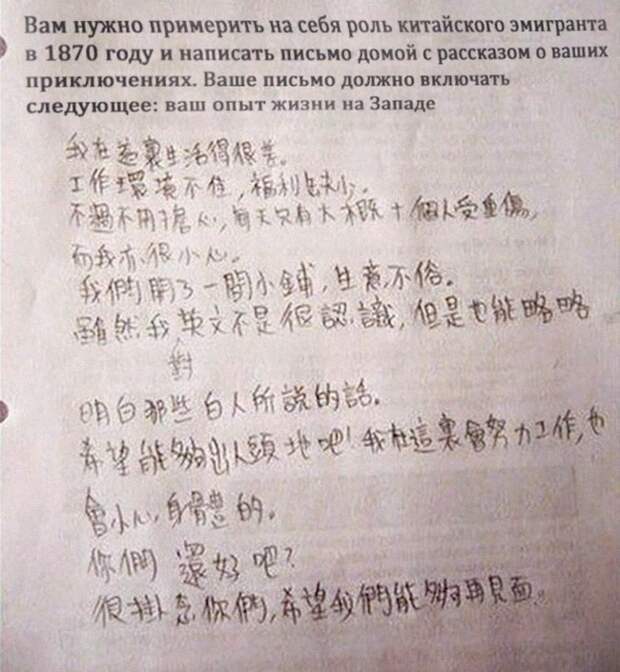 Вам нужно примерить на себя роль китайского эмигранта
в 1870 году и написать письмо домой с рассказом о ваших
приключениях. Ваше письмо должно включать
следующее: ваш опыт жизни на Западе
我在這裏生活得很差。
工作環境不佳，福利缺少。
不過不用擔心，每天只有大概十個人受重傷，
而我亦很小心。
我們開了一間小鋪，生意不俗。
雖然我英文不是很認識，但是也能略略
對
明白那些白人所說的話。
希望能夠出人頭地吧！我在這裏會努力工作，也
會小心身體的。
你們還好吧？
很掛念你們，希望我們能夠再見面。